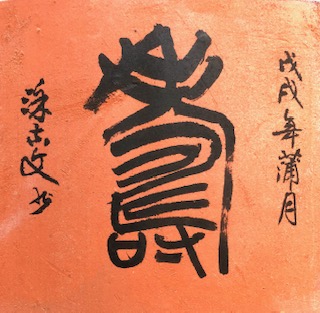 戊戌年蒲月
壽